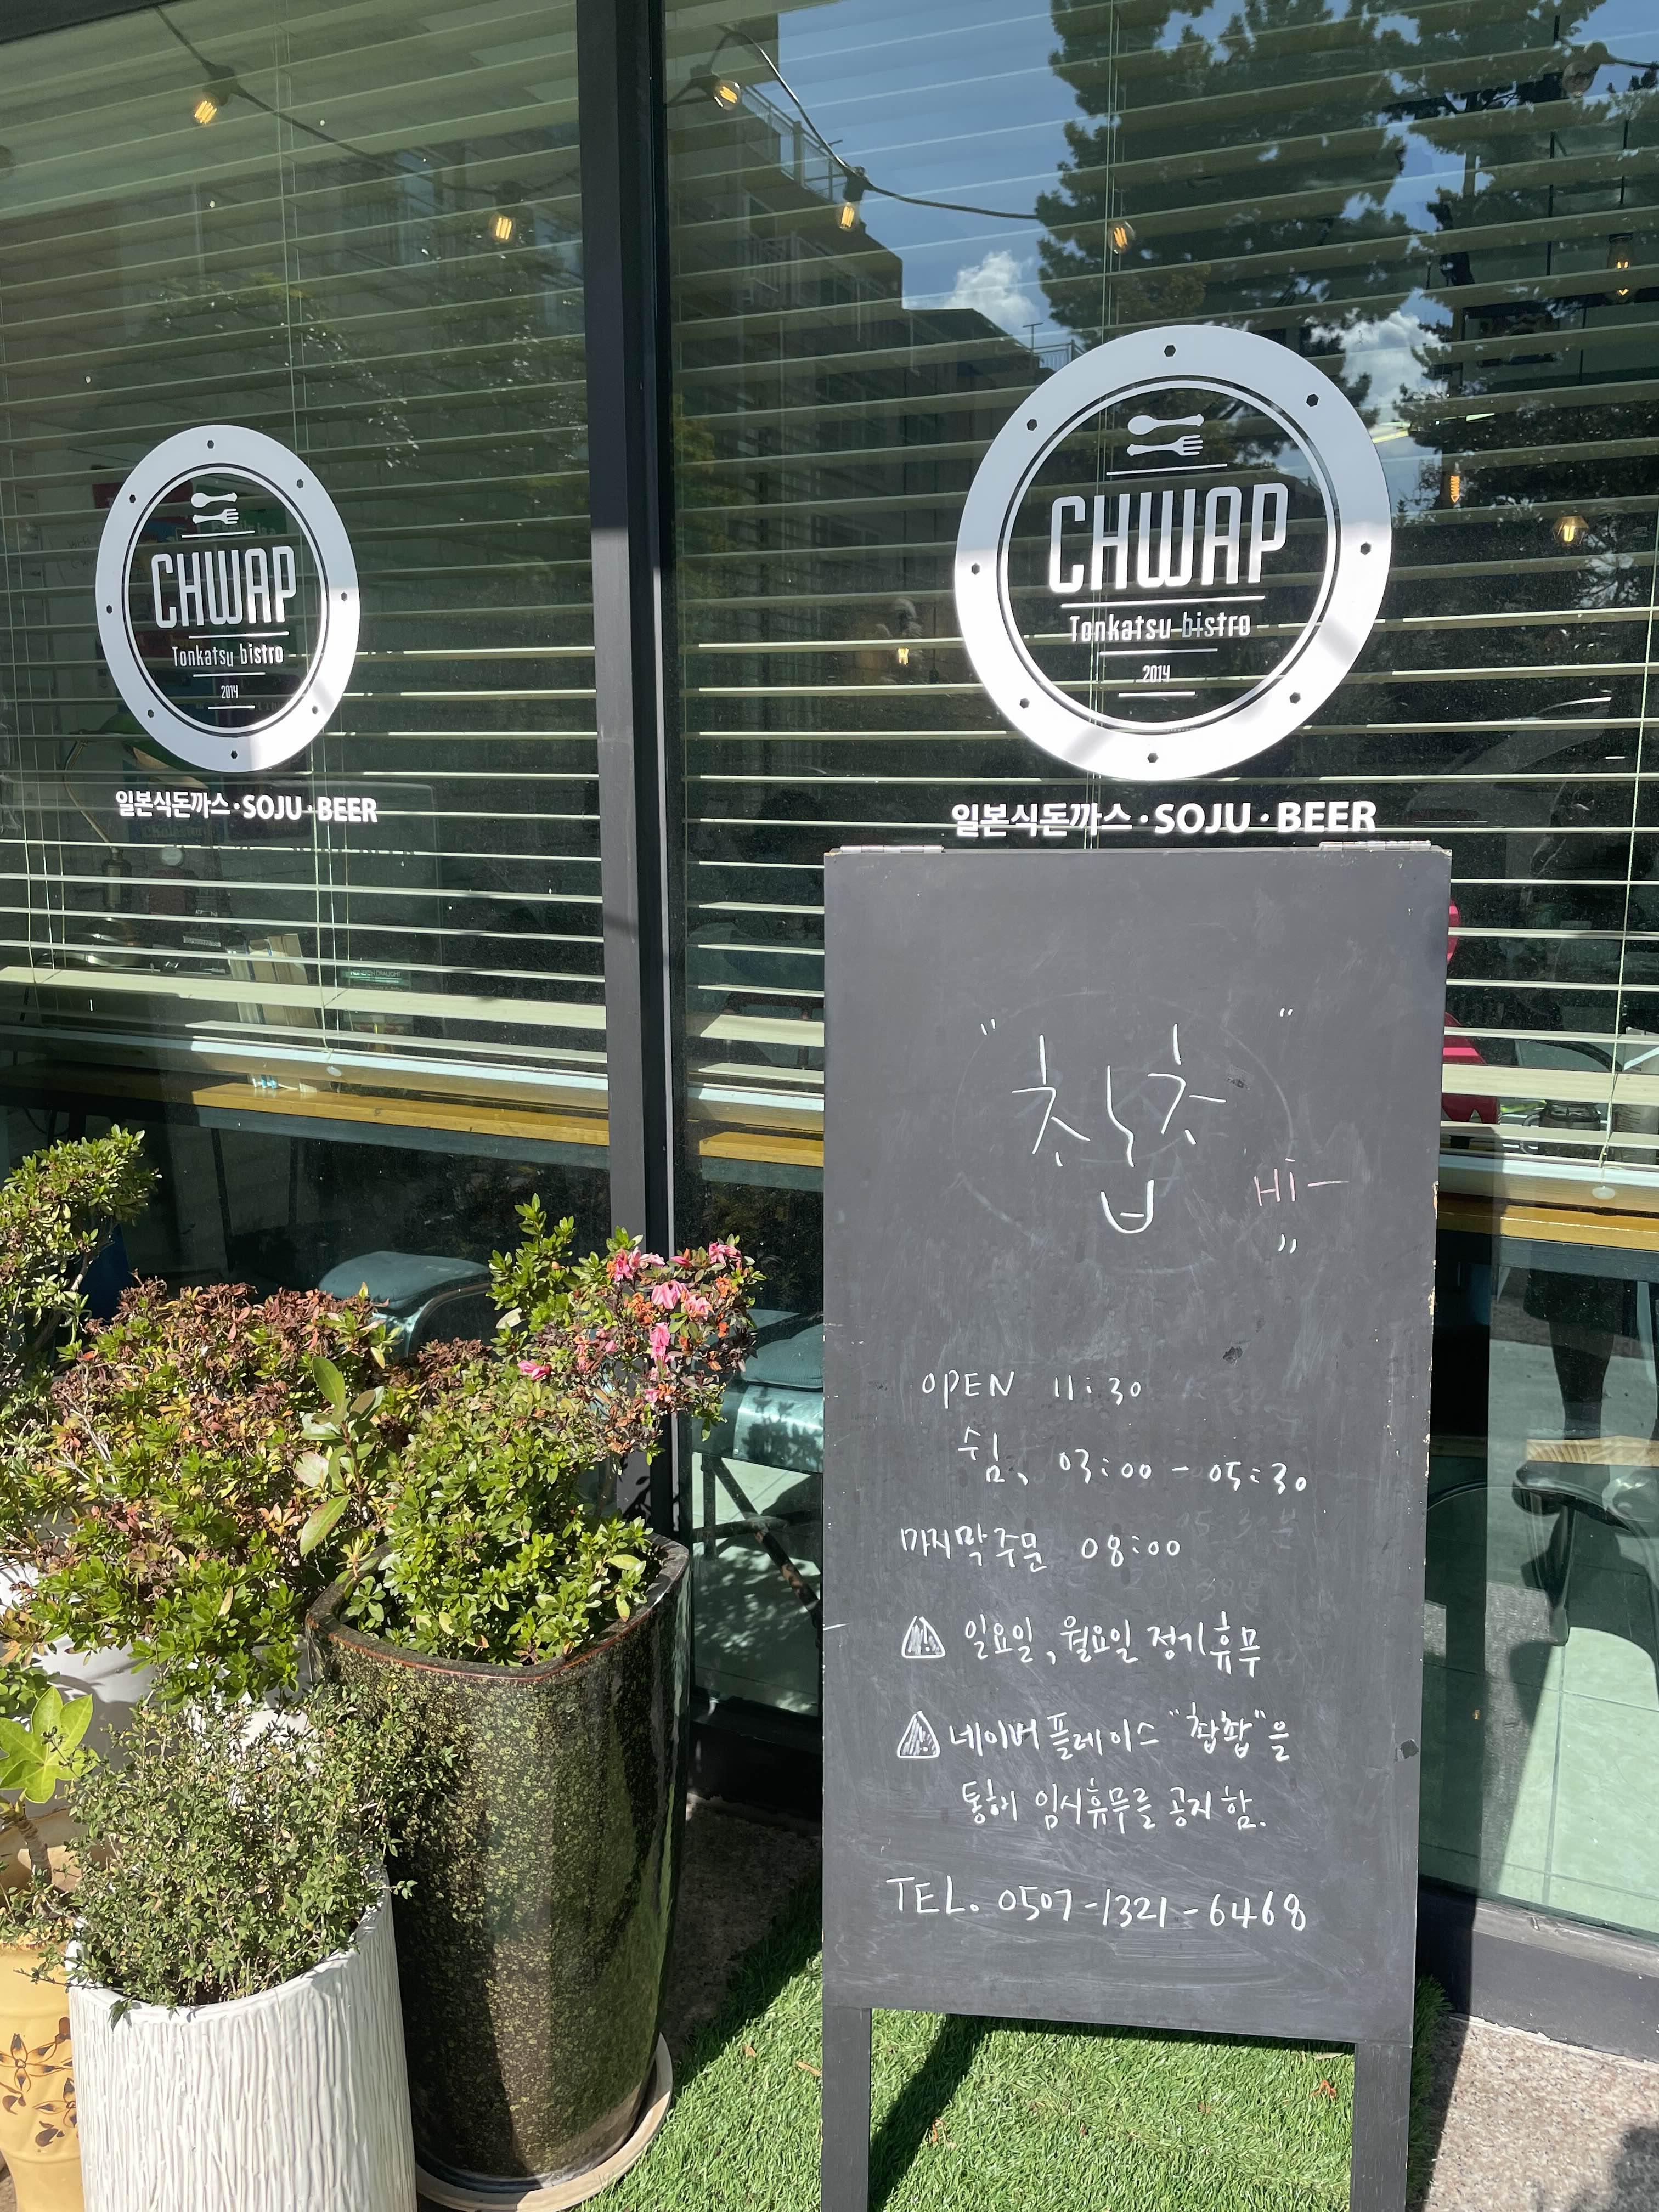 CHWAP
Tonkatsu bistro
2014
일본식돈까스·SOJU·BEER
CHWAP
Tonkatsu bistro
2014
일본식돈까스·SOJU·BEER
Hi-
OPEN 11:30
쉼, 03:00 - 05:30
마지막주문 08:00
일요일, 월요일 정기휴무
네이버플레이스 "촵촵"을
통해 임시휴무를 공지함.
TEL. 0507-1321-6468